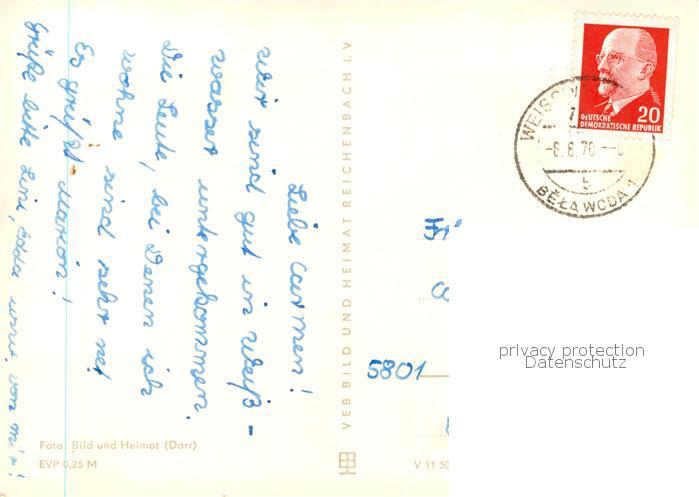 Liebe Carmen!
wir sind gut in Weiß-
wasser untergekommen.
Die Leute, bei Denen ich
wohne sind sehr net
Es grüßt Marion!
Grüße bitte Lini, von mir!
VEB BILD UND HEIMAT REICHENBACH I. V
Foto: Bild und Heimat (Darr)
EVP 0,25 M
V 11 50
20
DEUTSCHE
DEMOKRATISCHE REPUBLIK
WEISS
-6.8.70
b
BĚŁA WODA 1
5801
privacy protection
Datenschutz